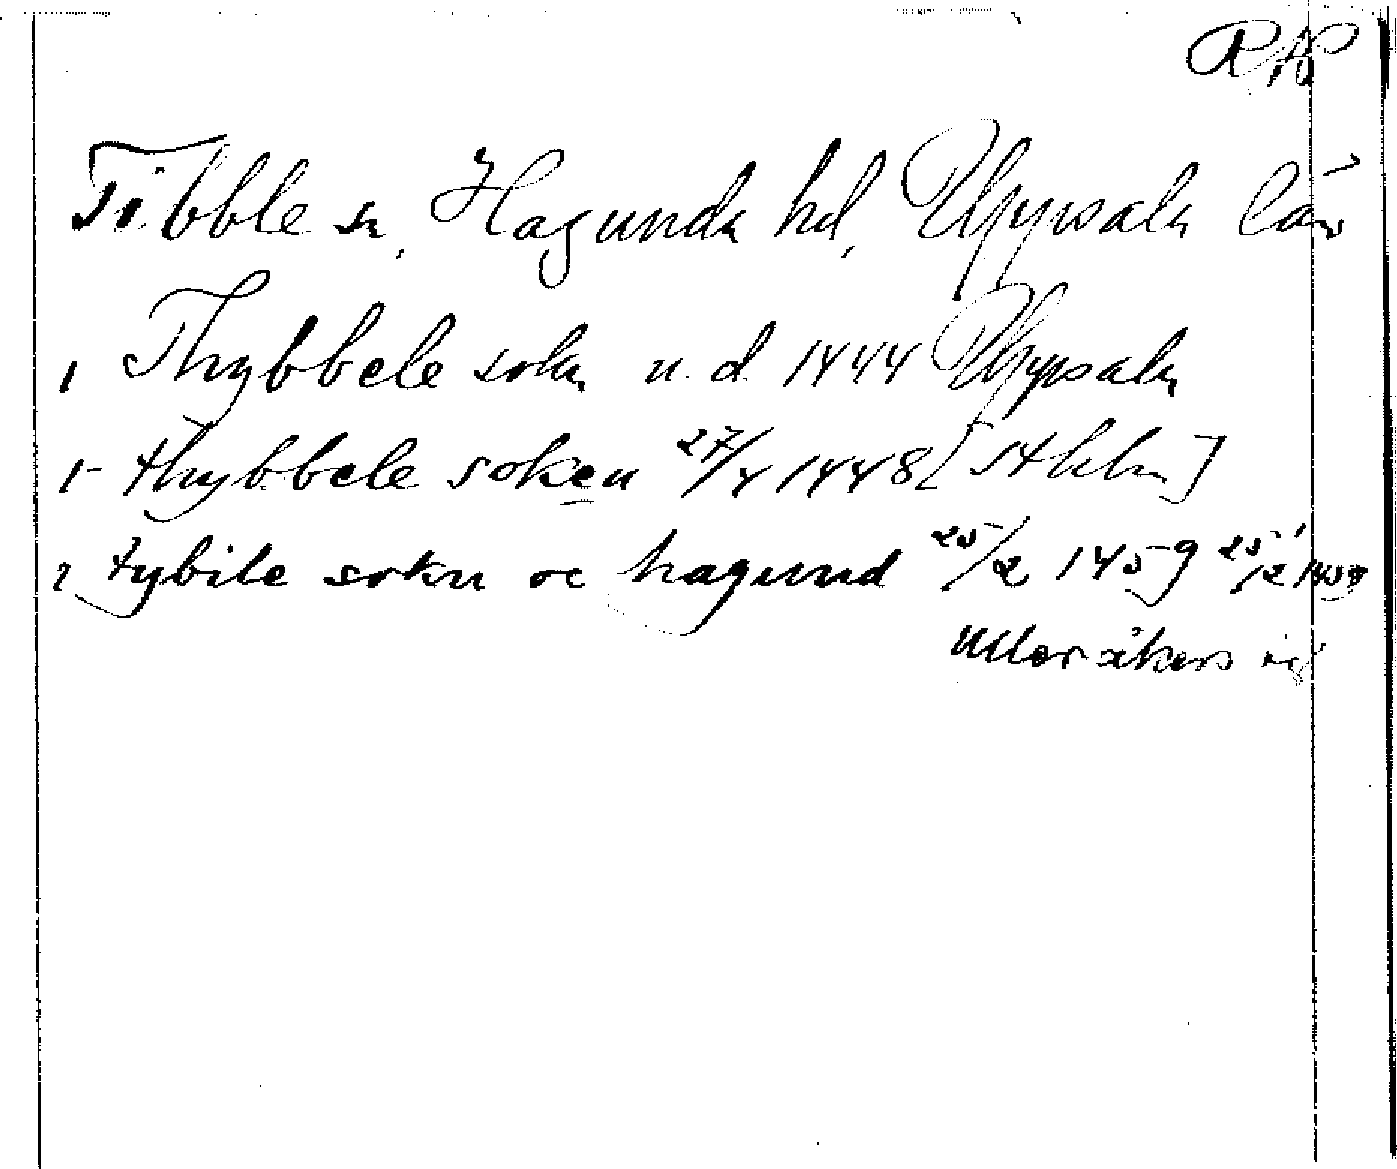 RAP
Tibble sn, Hagunda hd, Uppsala län
1 Thybbele sokn u. d. 1444 Uppsala
1 thybbele soken 27/4 1448 [Sthlm]
2 tybile sokn oc hagund 25/2 1459 25/2 1459
Ulleråkers